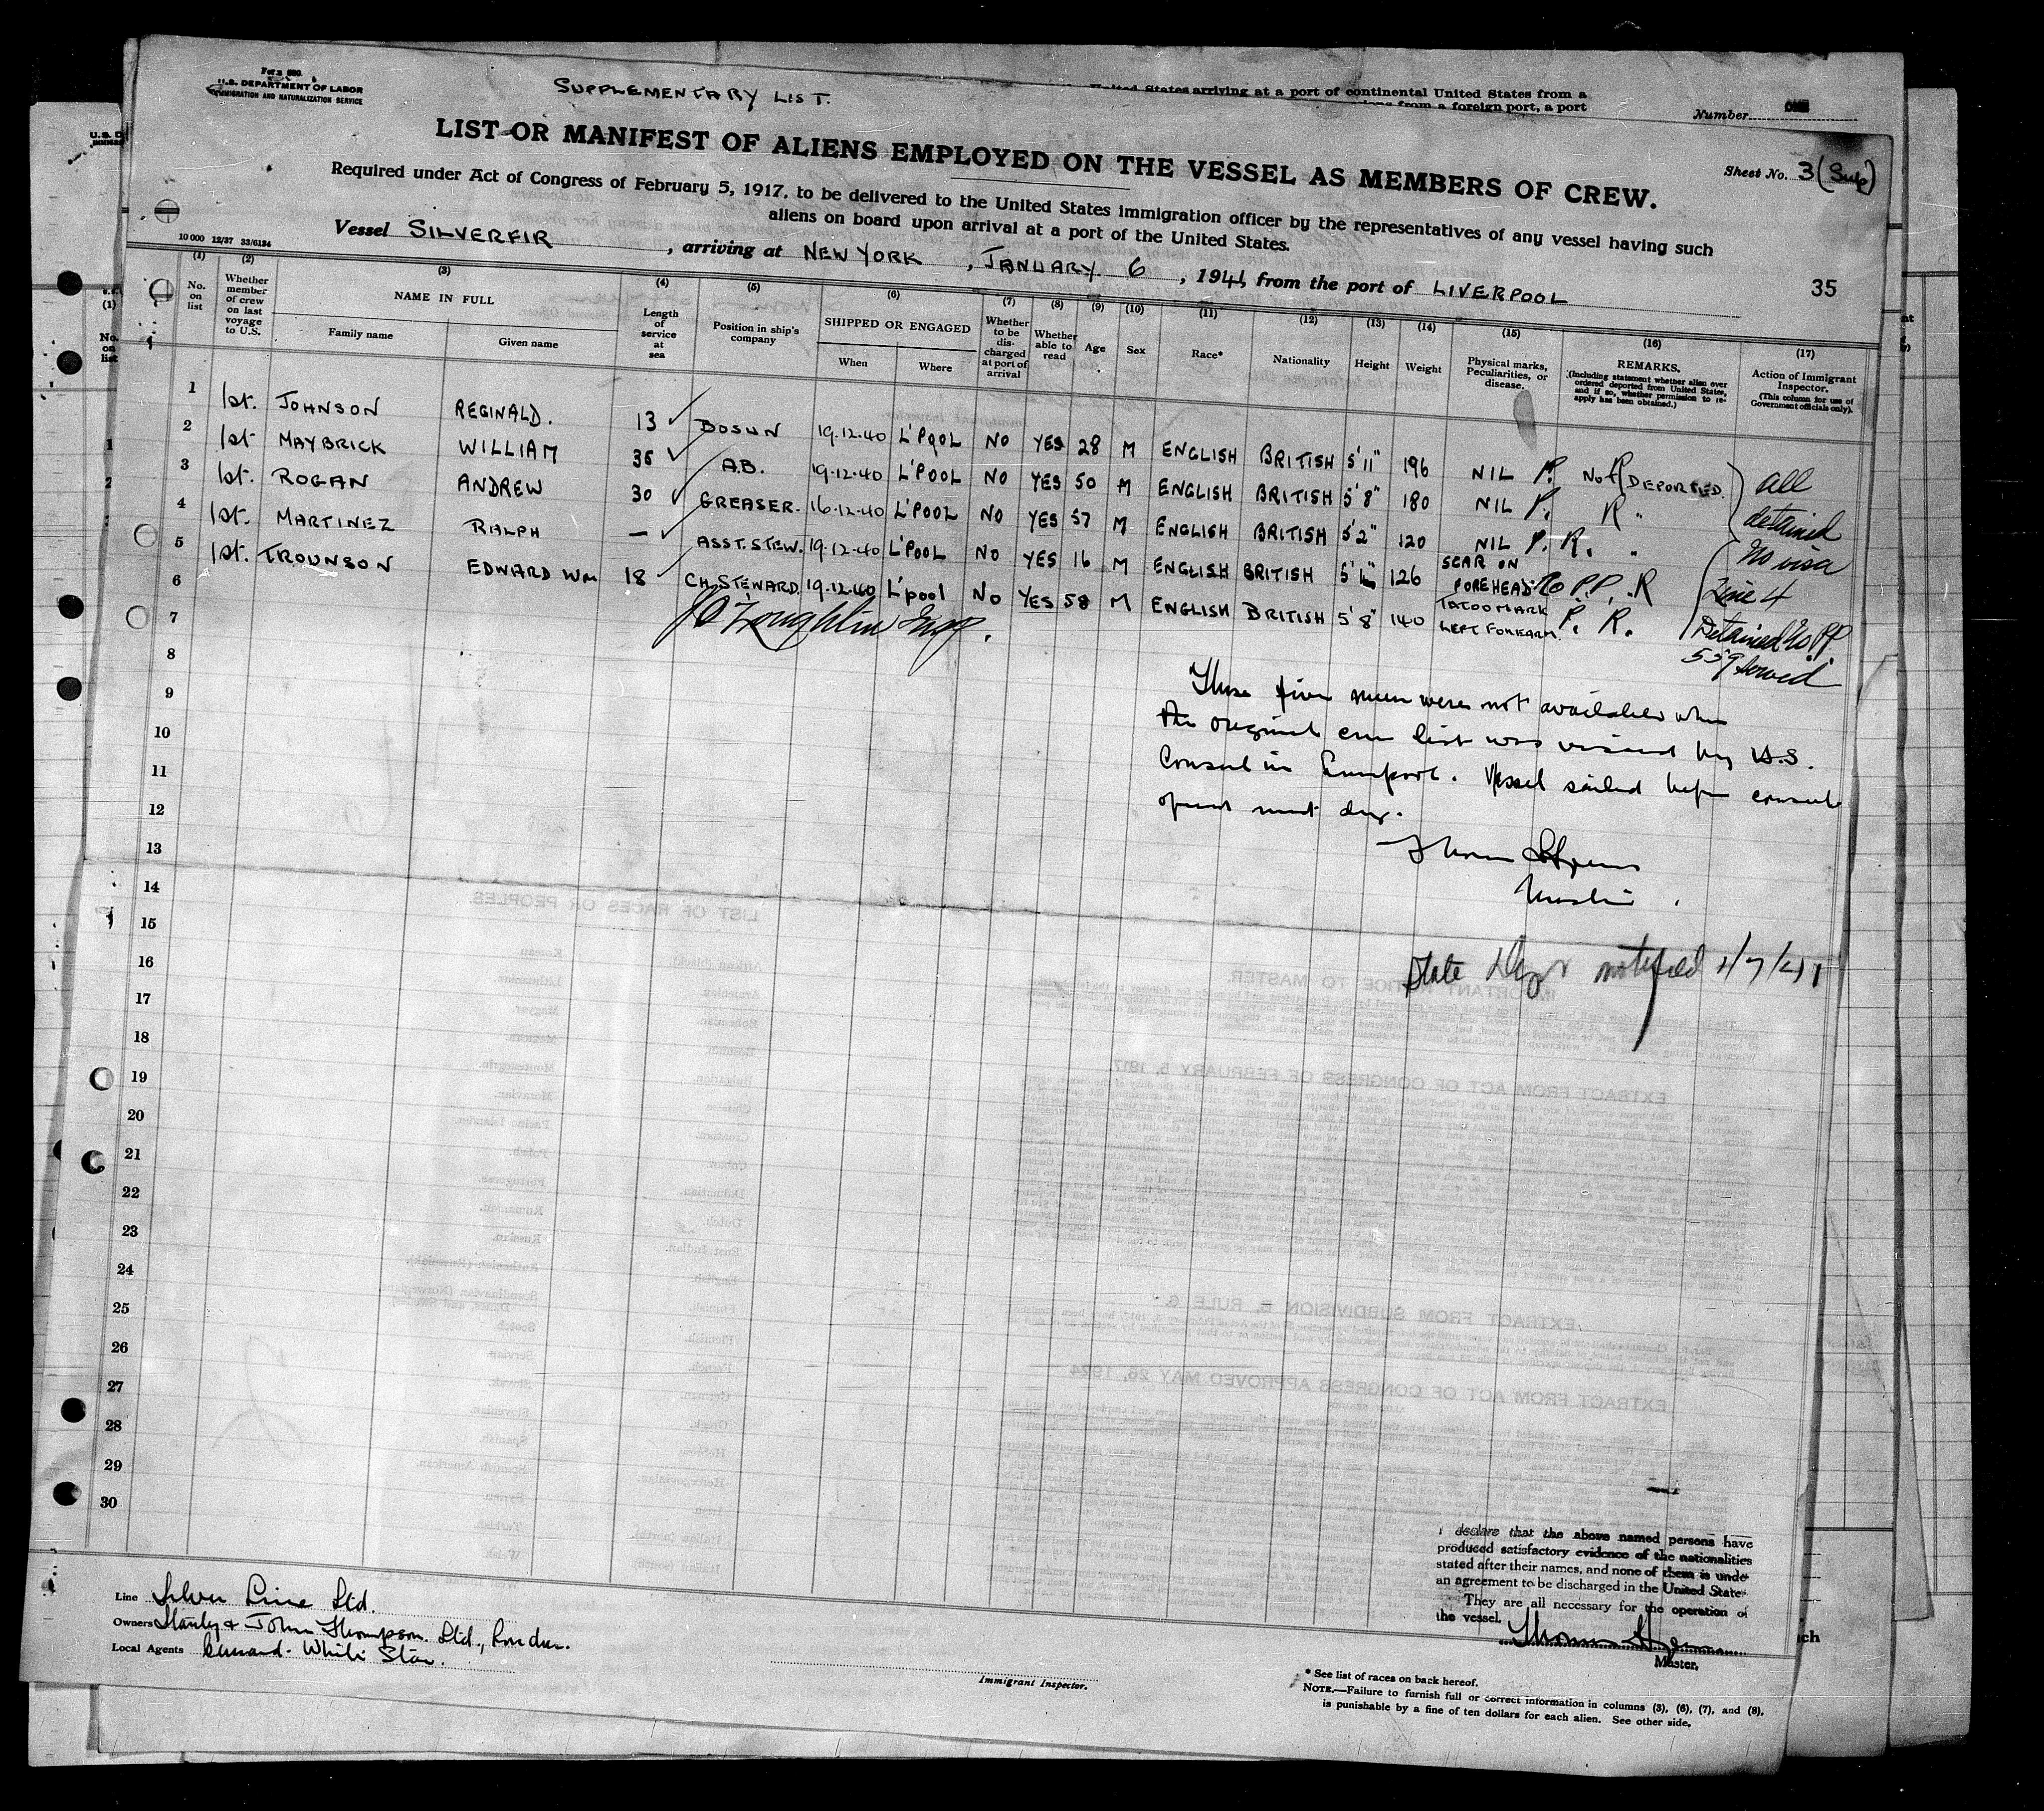 Form 680
U.S. DEPARTMENT OF LABOR
IMMIGRATION AND NATURALIZATION SERVICE
SUPPLEMENTARY LIST.
United States arriving at a port of continental United States from a
from a foreign port, a port
Number ONE
LIST OR MANIFEST OF ALIENS EMPLOYED ON THE VESSEL AS MEMBERS OF CREW.
Sheet No. 3 (Sup)
Required under Act of Congress of February 5, 1917, to be delivered to the United States immigration officer by the representatives of any vessel having such
aliens on board upon arrival at a port of the United States.
10 000 12/37 33/6134
Vessel SILVERFIR, arriving at NEW YORK, JANUARY 6, 1941, from the port of LIVERPOOL
35
(1) (2) (3) (4) (5) (6) (7) (8) (9) (10) (11) (12) (13) (14) (15) (16) (17)
No. on list
Whether member of crew on last voyage to U.S.
NAME IN FULL
Family name
Given name
Length of service at sea
Position in ship's company
SHIPPED OR ENGAGED
When
Where
Whether to be discharged at port of arrival
Whether able to read
Age
Sex
Race*
Nationality
Height
Weight
Physical marks, Peculiarities, or disease.
REMARKS.
(Including statement whether alien ever ordered deported from United States, and if so, whether permission to re-apply has been obtained.)
Action of Immigrant Inspector.
(This column for use of Government officials only).
1 1st. JOHNSON REGINALD. 13 ✓ BOSUN 19-12-40 L'POOL NO YES 28 M ENGLISH BRITISH 5'11" 196 NIL P. Not R DEPORTED.
2 1st MAYBRICK WILLIAM 36 ✓ A.B. 19-12-40 L'POOL NO YES 50 M ENGLISH BRITISH 5'8" 180 NIL P. R "
3 1st. ROGAN ANDREW 30 ✓ GREASER. 16-12-40 L'POOL NO YES 57 M ENGLISH BRITISH 5'2" 120 NIL P. R. "
4 1st. MARTINEZ RALPH — ✓ ASST. STEW. 19-12-40 L'POOL NO YES 16 M ENGLISH BRITISH 126 SCAR ON FOREHEAD. No P.P. R
5 1st. TROUNSON EDWARD Wm 18 ✓ CH. STEWARD. 19-12-40 L'pool No YES 58 M ENGLISH BRITISH 5'8" 140 TATOO MARK LEFT FOREARM. P. R.
all
detained
No visa
Line 4
Detained No P.P.
559 Served
6
7
8
9
10
11
12
13
14
15
16
17
18
19
20
21
22
23
24
25
26
27
28
29
30
These five men were not available when
the original crew list was visaed by U.S.
Consul in Liverpool. Vessel sailed before consul
opened next day.
Master.
State Dep notified 1/7/41
I declare that the above named persons have
produced satisfactory evidence of the nationalities
stated after their names, and none of them is unde
an agreement to be discharged in the United State
They are all necessary for the operation of
the vessel.
Master.
Line Silver Line Ltd.
Owners Stanley & John Thompson. Ltd., London.
Local Agents Cunard-White Star.
Immigrant Inspector.
* See list of races on back hereof.
NOTE.—Failure to furnish full or correct information in columns (3), (6), (7), and (8),
is punishable by a fine of ten dollars for each alien. See other side.